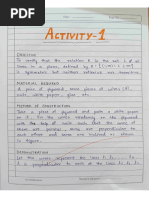 ACTIVITY-1
OBJECTIVE
To verify that the relation R in the set L of
lines in a plane, defined by R = {(l,m): l ⊥ m}
is symmetric but neither reflexive nor transitive.
MATERIAL REQUIRED
A piece of plywood, some pieces of wires (8),
nails, white paper, glue etc.
METHOD OF CONSTRUCTION
Take a piece of plywood and paste a white paper
on it. Fix the wires randomly on the plywood
with the help of nails such that some of
them are parallel, some are perpendicular to
each other and some are inclined as shown in
fig.
DEMONSTRATION
Let the wires represent the lines
perpendicular to